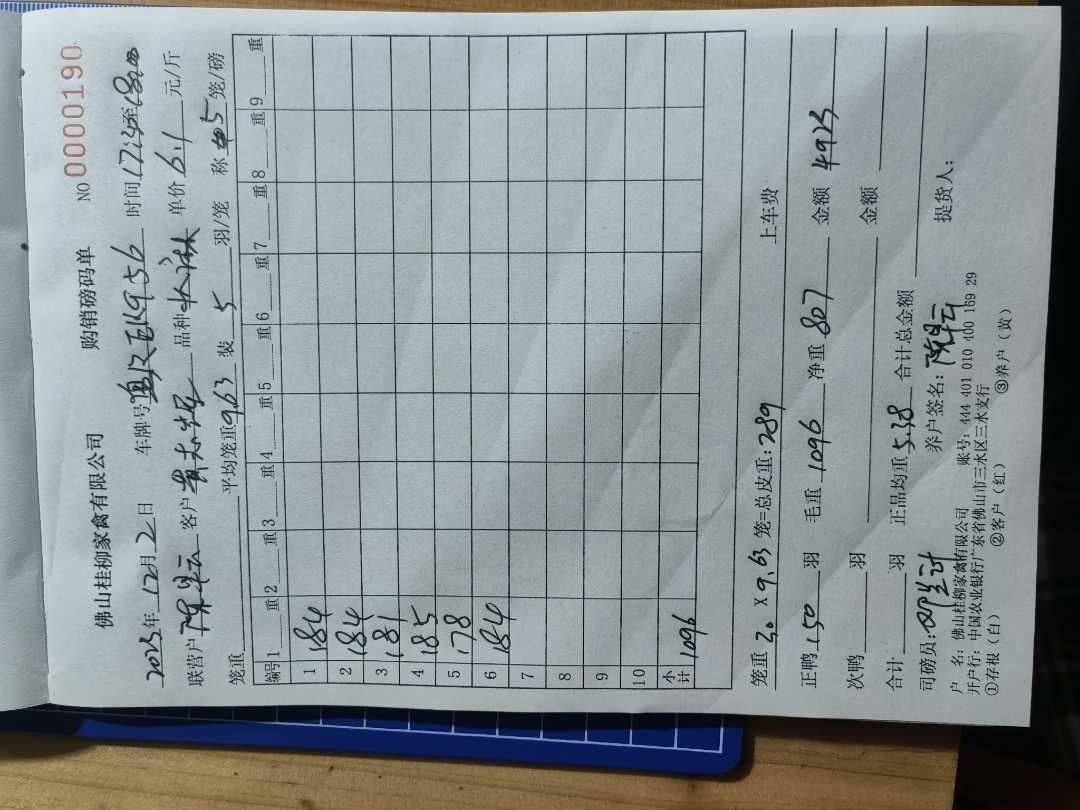 佛山桂柳家禽有限公司 购销磅码单 NO 0000190
2023年12月2日 车牌号 粤 EK956 时间17:4 至18:00
联营户 陈军云 客户 黄志辉 品种 水 单价6.1元/斤
笼重 平均笼重9.63 装5羽/笼 称5笼/磅
编号 1 重 2 重 3 重 4 重 5 重 6 重 7 重 8 重 9 重
1 184
2 184
3 181
4 185
5 178
6 184
7
8
9
10
小计 1096
笼重30×9.63笼=总皮重:289 上车费
正鸭150羽 毛重1096 净重807 金额4923
次鸭 羽 金额
合计 羽 正品均重5.38 合计总金额
司磅员: 养户签名:陈军云 提货人:
户 名:佛山桂柳家禽有限公司 账号:444 401 010 400 169 29
开户行:中国农业银行广东省佛山市三水区三水支行
①存根(白) ②客户(红) ③养户(黄)